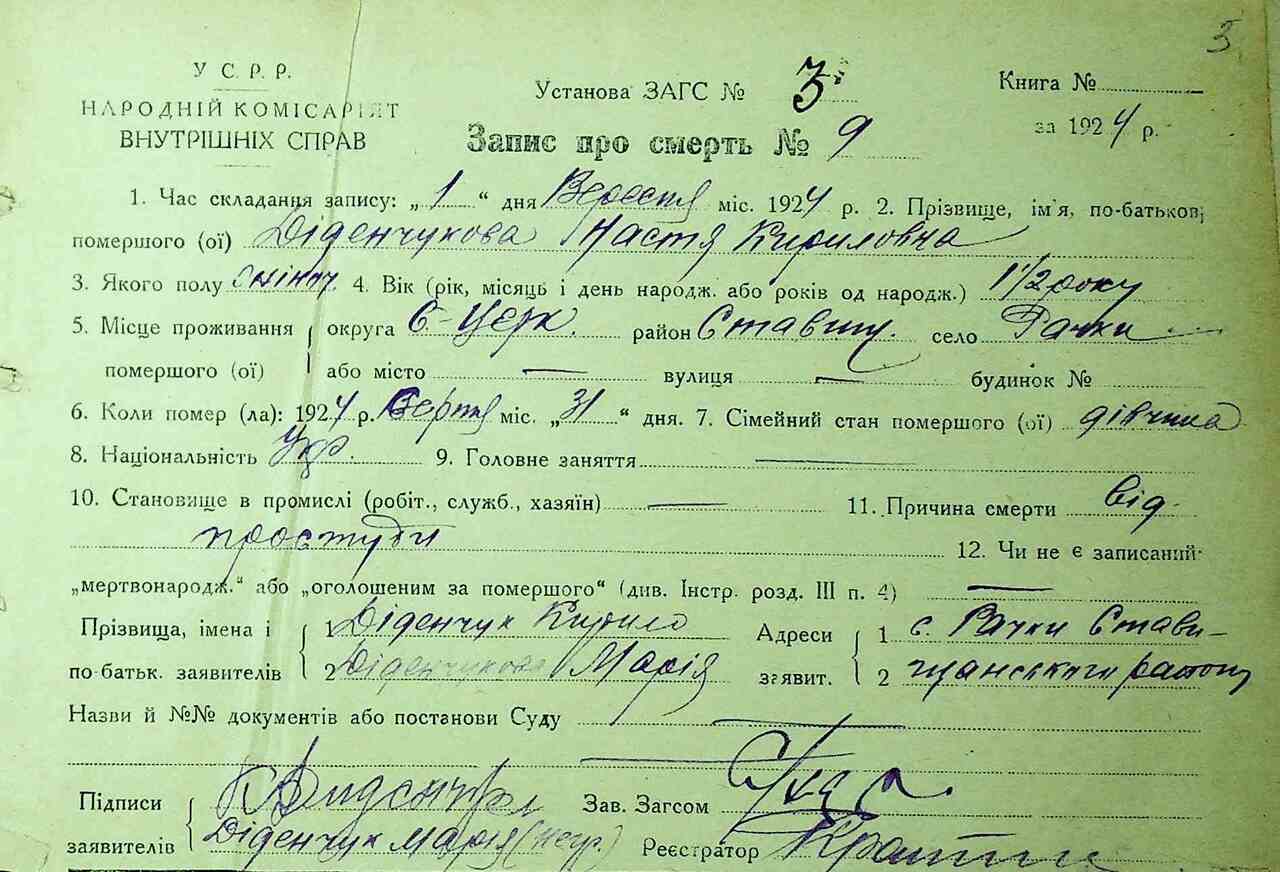 3
У С. Р. Р.
НАРОДНІЙ КОМІСАРІЯТ
ВНУТРІШНІХ СПРАВ
Установа ЗАГС № 3
Книга №
за 1924 р.
Запис про смерть № 9
1. Час складання запису: „ 1 “ дня Вересня міс. 1924 р. 2. Прізвище, ім'я, по-батькові
помершого (ої) Діденчукова Настя Кириловна
3. Якого полу жіноч. 4. Вік (рік, місяць і день народж. або років од народж.) 1 1/2 року
5. Місце проживання округа Б-Церк. район Ставищ. село Рачки
помершого (ої) або місто — вулиця — будинок №
6. Коли помер (ла): 1924 р. Серпня міс. „31 “ дня. 7. Сімейний стан помершого (ої) дівчина
8. Національність Укр. 9. Головне заняття —
10. Становище в промислі (робіт., служб., хазяїн) — 11. Причина смерти від
простуди 12. Чи не є записаний
„мертвонародж.“ або „оголошеним за помершого“ (див. Інстр. розд. III п. 4) —
Прізвища, імена і 1 Діденчук Кирило Адреси 1 с. Рачки Стави-
по-батьк. заявителів 2 Діденчукова Марія заявит. 2 щанського району
Назви й №№ документів або постанови Суду —
Підписи Зав. Загсом
заявителів Діденчук Марія (негр.) Реєстратор